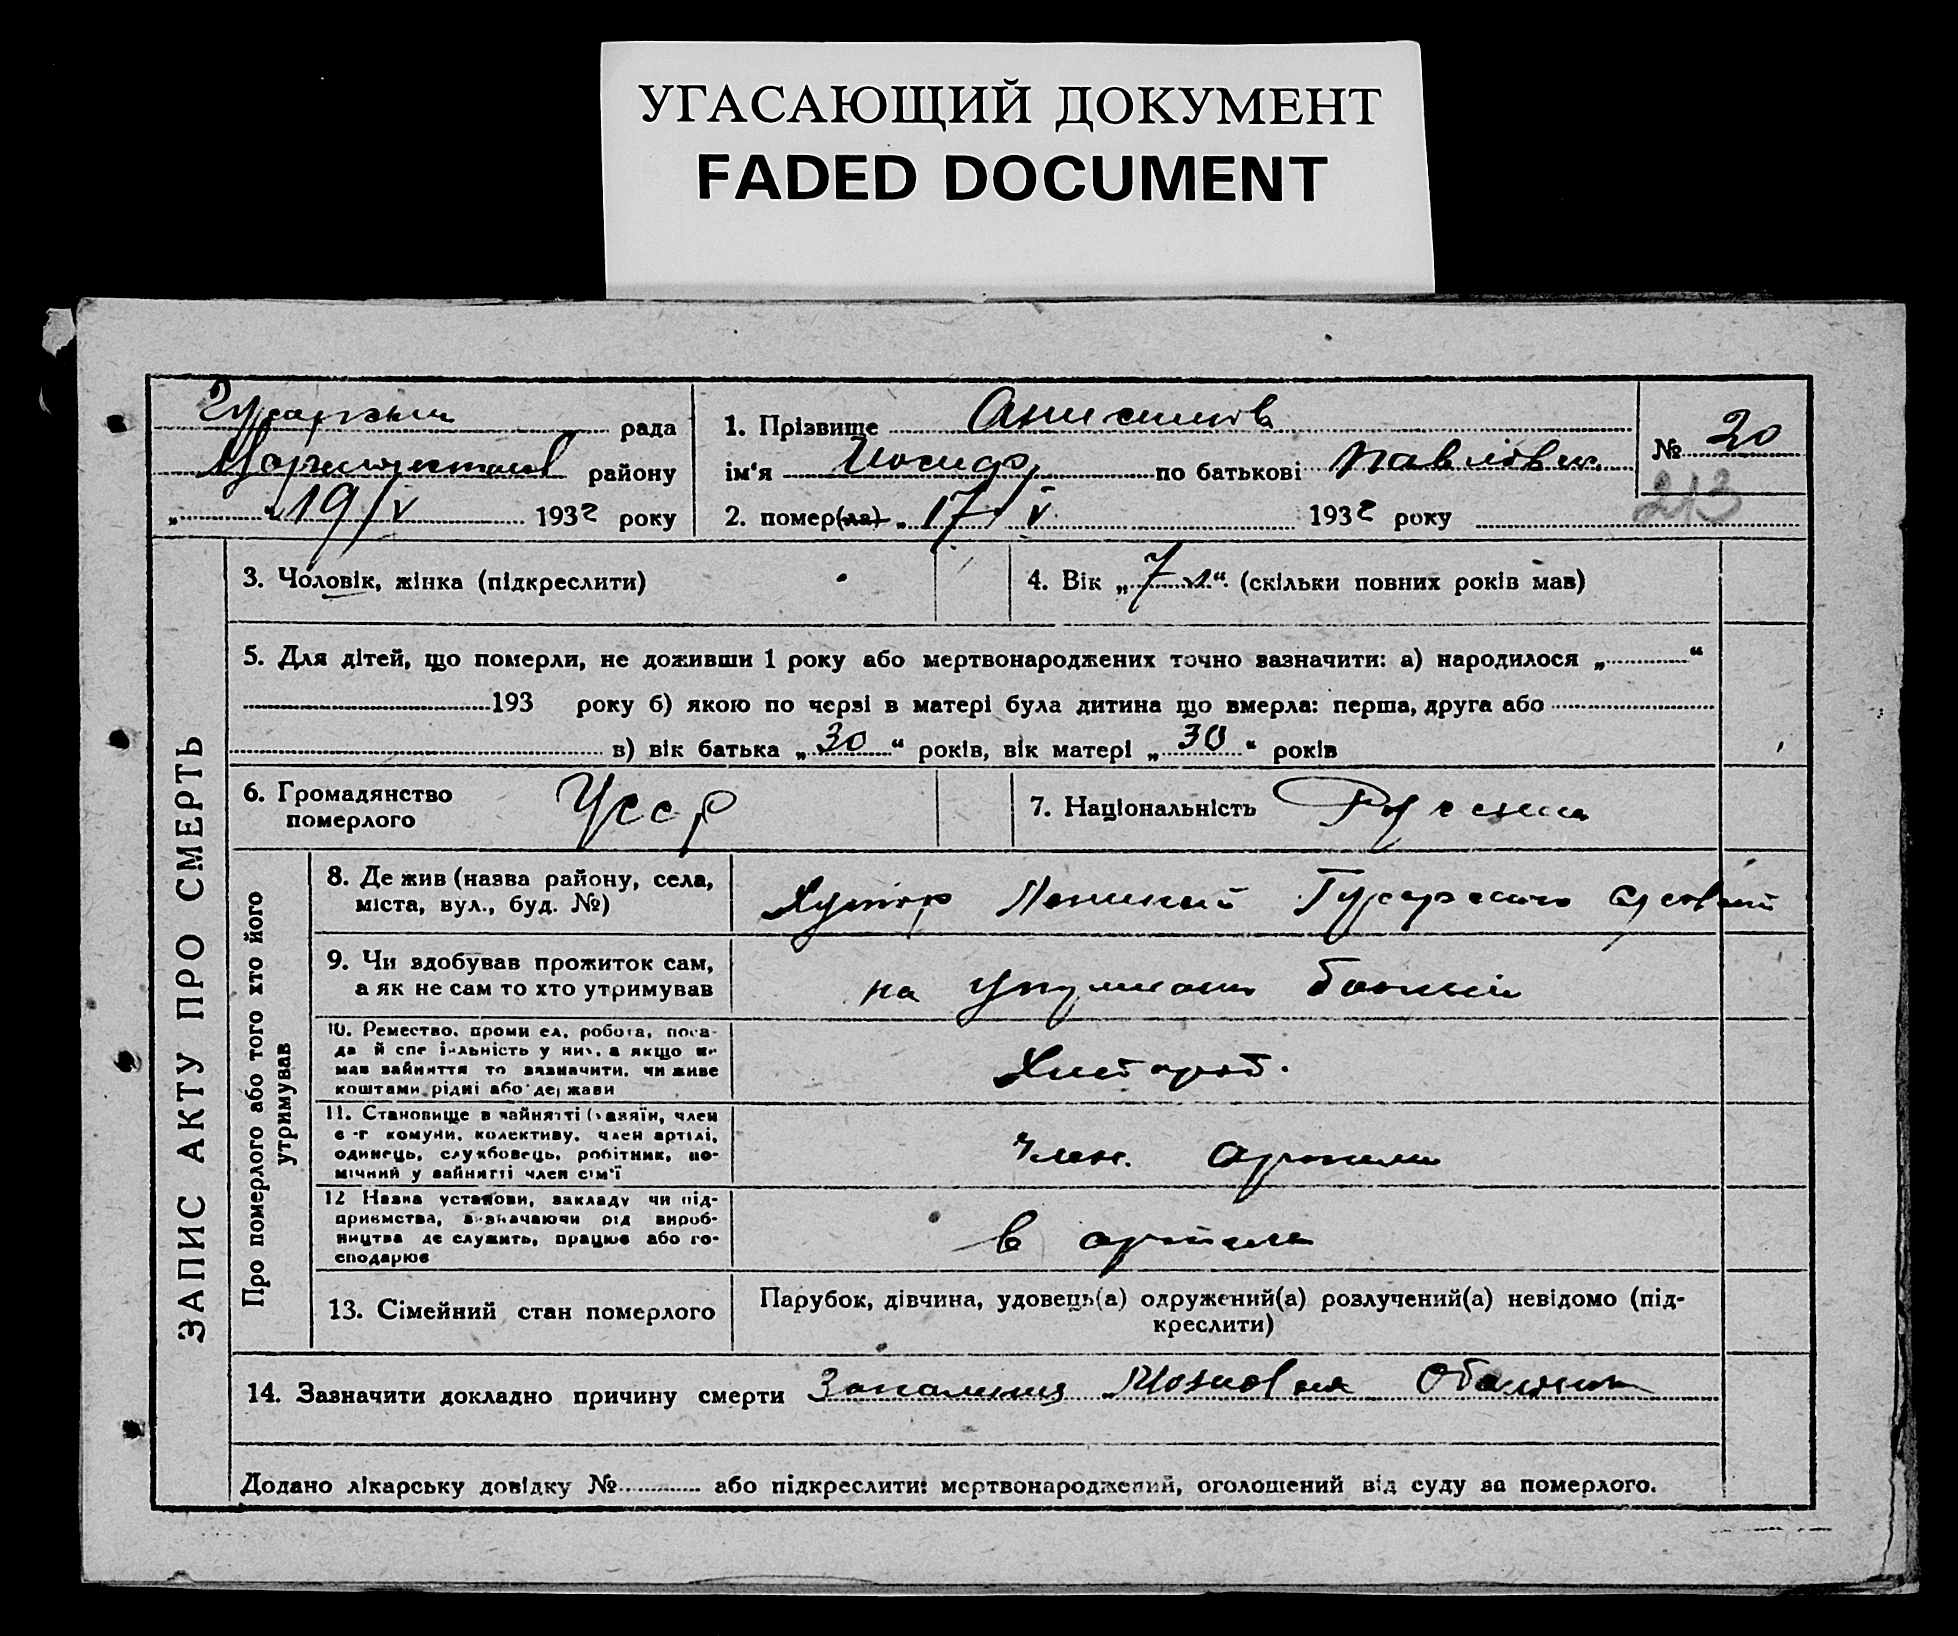 УГАСАЮЩИЙ ДОКУМЕНТ
FADED DOCUMENT
рада
району
„ “ 19/V 1932 року
1. Прізвище Анисимов
ім‘я Иосиф по батькові Павлович
2. помер(ла) „ 17/V 1932 року
№ 20
213
ЗАПИС АКТУ ПРО СМЕРТЬ
3. Чоловік, жінка (підкреслити)
4. Вік „ 7 л “ (скільки повних років мав)
5. Для дітей, що померли, не доживши 1 року або мертвонароджених точно зазначити: а) народилося „ “
193 року б) якою по черзі в матері була дитина що вмерла: перша, друга або
в) вік батька „ 30 “ років, вік матері „ 30 “ років
6. Громадянство
померлого
Усср
7. Національність
Про померлого або того хто його
утримував
8. Де жив (назва району, села,
міста, вул., буд. №)
Хутор
9. Чи здобував прожиток сам,
а як не сам то хто утримував
на
10. Ремество, проми ел, робота, поса-
да й спе і льність у них, а якщо не
мав зайняття то зазначити, чи живе
коштами рідні або держави
Хлебороб.
11. Становище в зайнятті (хазяїн, член
с-г комуни, колективу, член артілі,
одинець, службовець, робітник, по-
мічний у зайнятті член сім‘ї
член. артели
12 Назва установи, закладу чи під-
приємства, визначаючи рід вироб-
ництва де служить, працює або го-
сподарює
в артели
13. Сімейний стан померлого
Парубок, дівчина, удовець(а) одружений(а) розлучений(а) невідомо (під-
креслити)
14. Зазначити докладно причину смерти Запалиния
Додано лікарську довідку № або підкреслити: мертвонароджений, оголошений від суду за померлого.